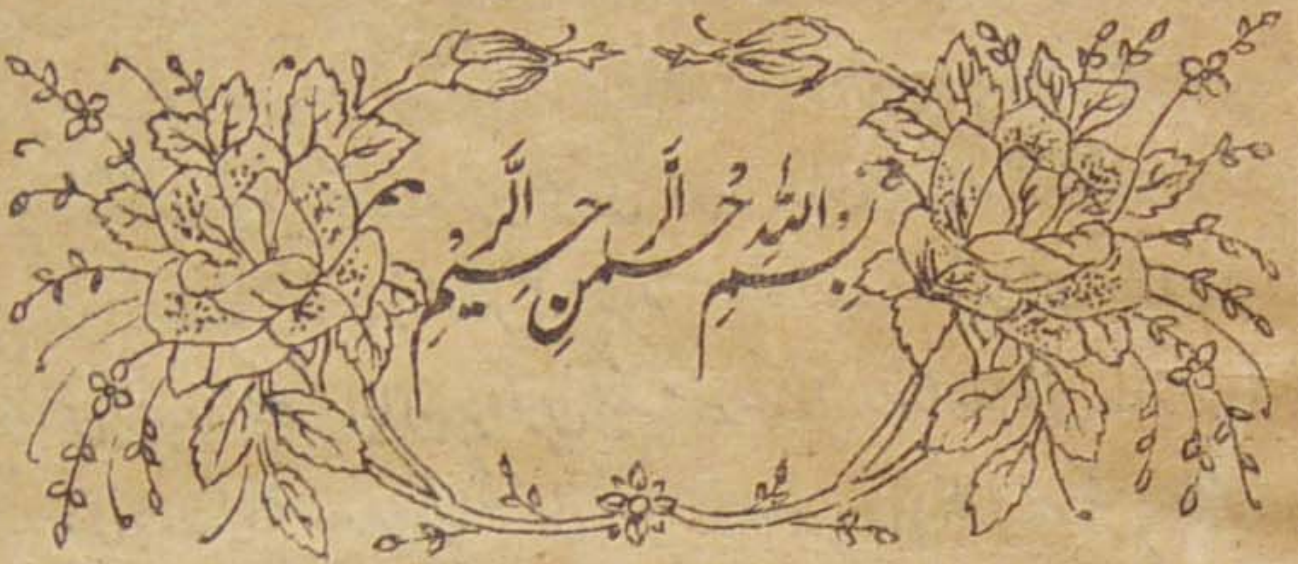 بِسمِ اللهِ الرَّحمنِ الرَّحیمِ